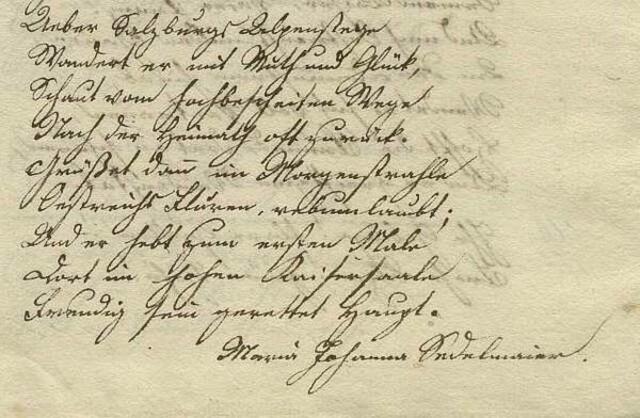 Ueber Salzburgs Alpenstege
Wandert er mit Muth und Glück,
Schaut vom hochbescheiten Wege
Nach der Heimath oft zurück.
Grüßet dann im Morgenstrahle
Oestreichs Fluren, rebumlaubt;
Und er hebt zum ersten Male
Dort im hohen Kaisersaale
Freudig sein gerettet Haupt.
Maria Johanna Sedelmaier.